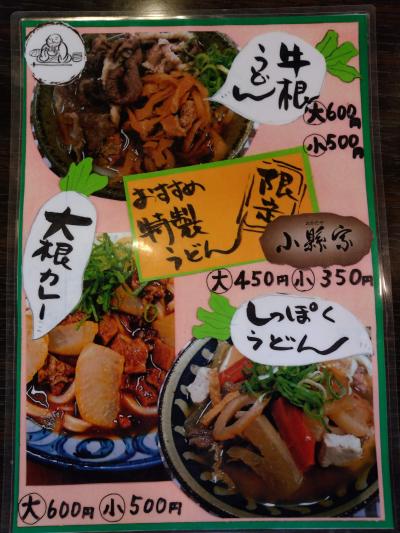 牛根
うどん
大600円
小500円
限定
おすすめ
特製
うどん
おがたや
小縣家
大450円 小350円
大根カレー
しっぽく
うどん
大600円 小500円